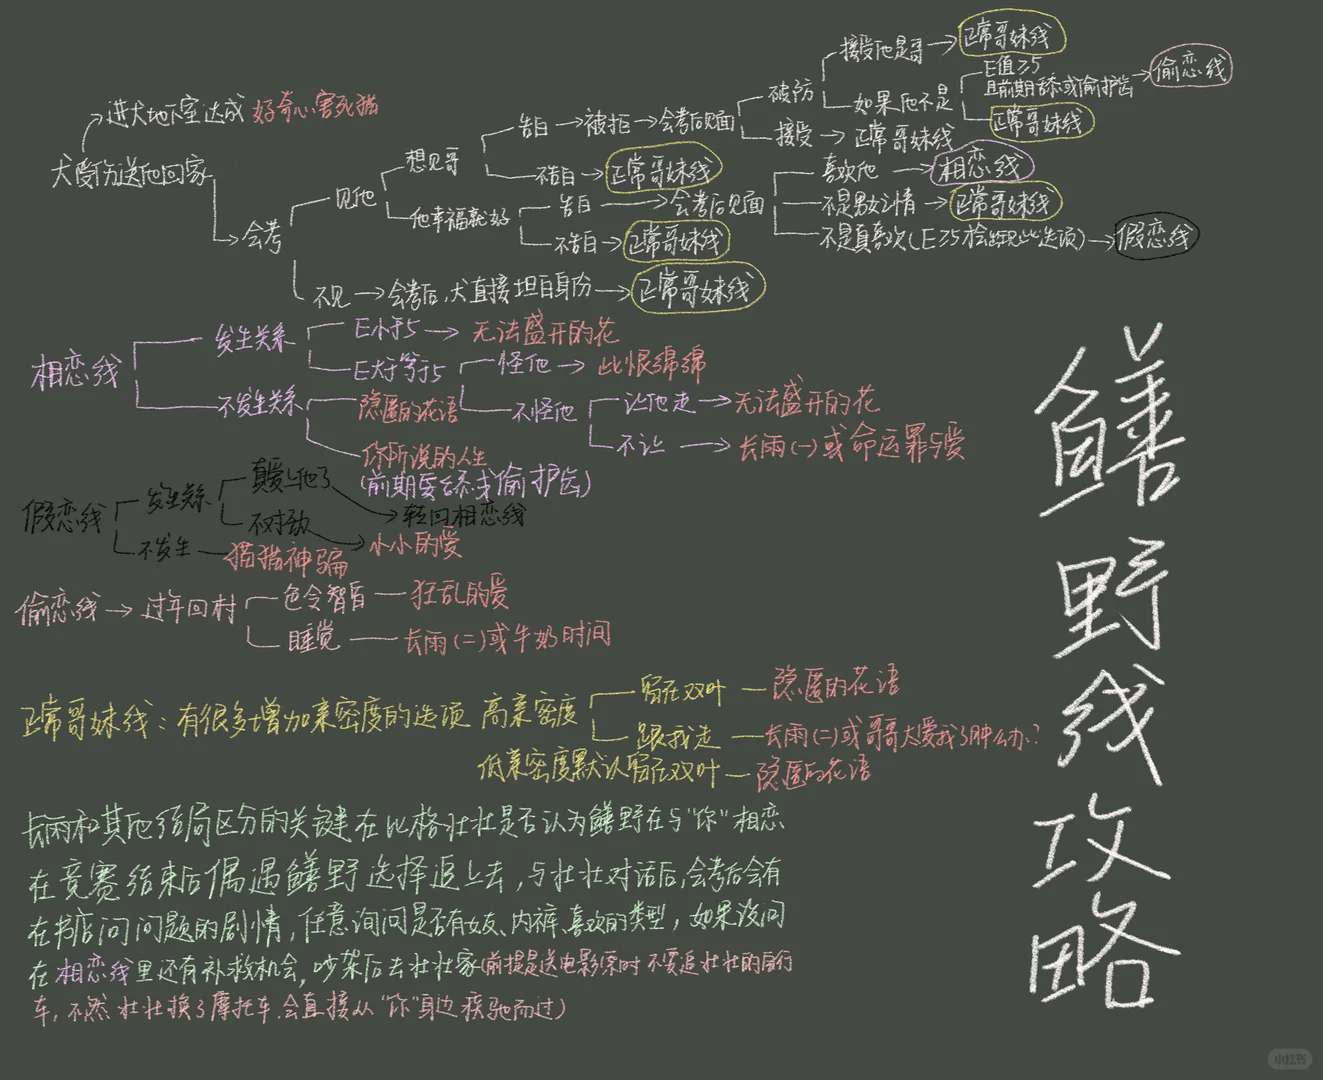 接受他是哥→正常哥妹线
E值≥5
且前期舔或偷护齿→偷恋线
破防
如果他不是
正常哥妹线
进犬地下室达成 好奇心害死猫
告白→被拒→会考后见面
接受→正常哥妹线
想见哥
犬受伤送他回家
不告白→正常哥妹线
喜欢他→相恋线
见他
他幸福就好
告白→会考后见面
不是男女之情→正常哥妹线
会考
不告白→正常哥妹线
不是真喜欢(E≥5检出现此选项)→假恋线
不见→会考后,犬直接坦白身份→正常哥妹线
发生关系
E小于5→无法盛开的花
相恋线
E大于等于5
怪他→此恨绵绵
不发生关系
隐匿的花语
不怪他
让他走→无法盛开的花
不让→长雨(一)或命运罪与爱
你所说的人生
(前期要舔或偷护齿)
假恋线
发生关系
真爱上他了
不对劲
转回相恋线
不发生
猫猫神骗
小小的爱
偷恋线→过年回村
色令智昏—狂乱的爱
睡觉—长雨(二)或牛奶时间
正常哥妹线:有很多增加亲密度的选项 高亲密度
留在双叶—隐匿的花语
跟我走—长雨(二)或哥哥太爱我了肿么办?
低亲密度默认留在双叶—隐匿的花语
长雨和其他结局区分的关键在比格壮壮是否认为鳝野在与“你”相恋
在竞赛结束后偶遇鳝野选择追上去,与壮壮对话后,会考后会有
在书店问问题的剧情,任意询问是否有女友、内裤、喜欢的类型,如果没问
在相恋线里还有补救机会,吵架后去壮壮家(前提是送电影票时不要追壮壮的自行
车,不然壮壮换了摩托车会直接从“你”身边疾驰而过)
鳝野线攻略
小红书